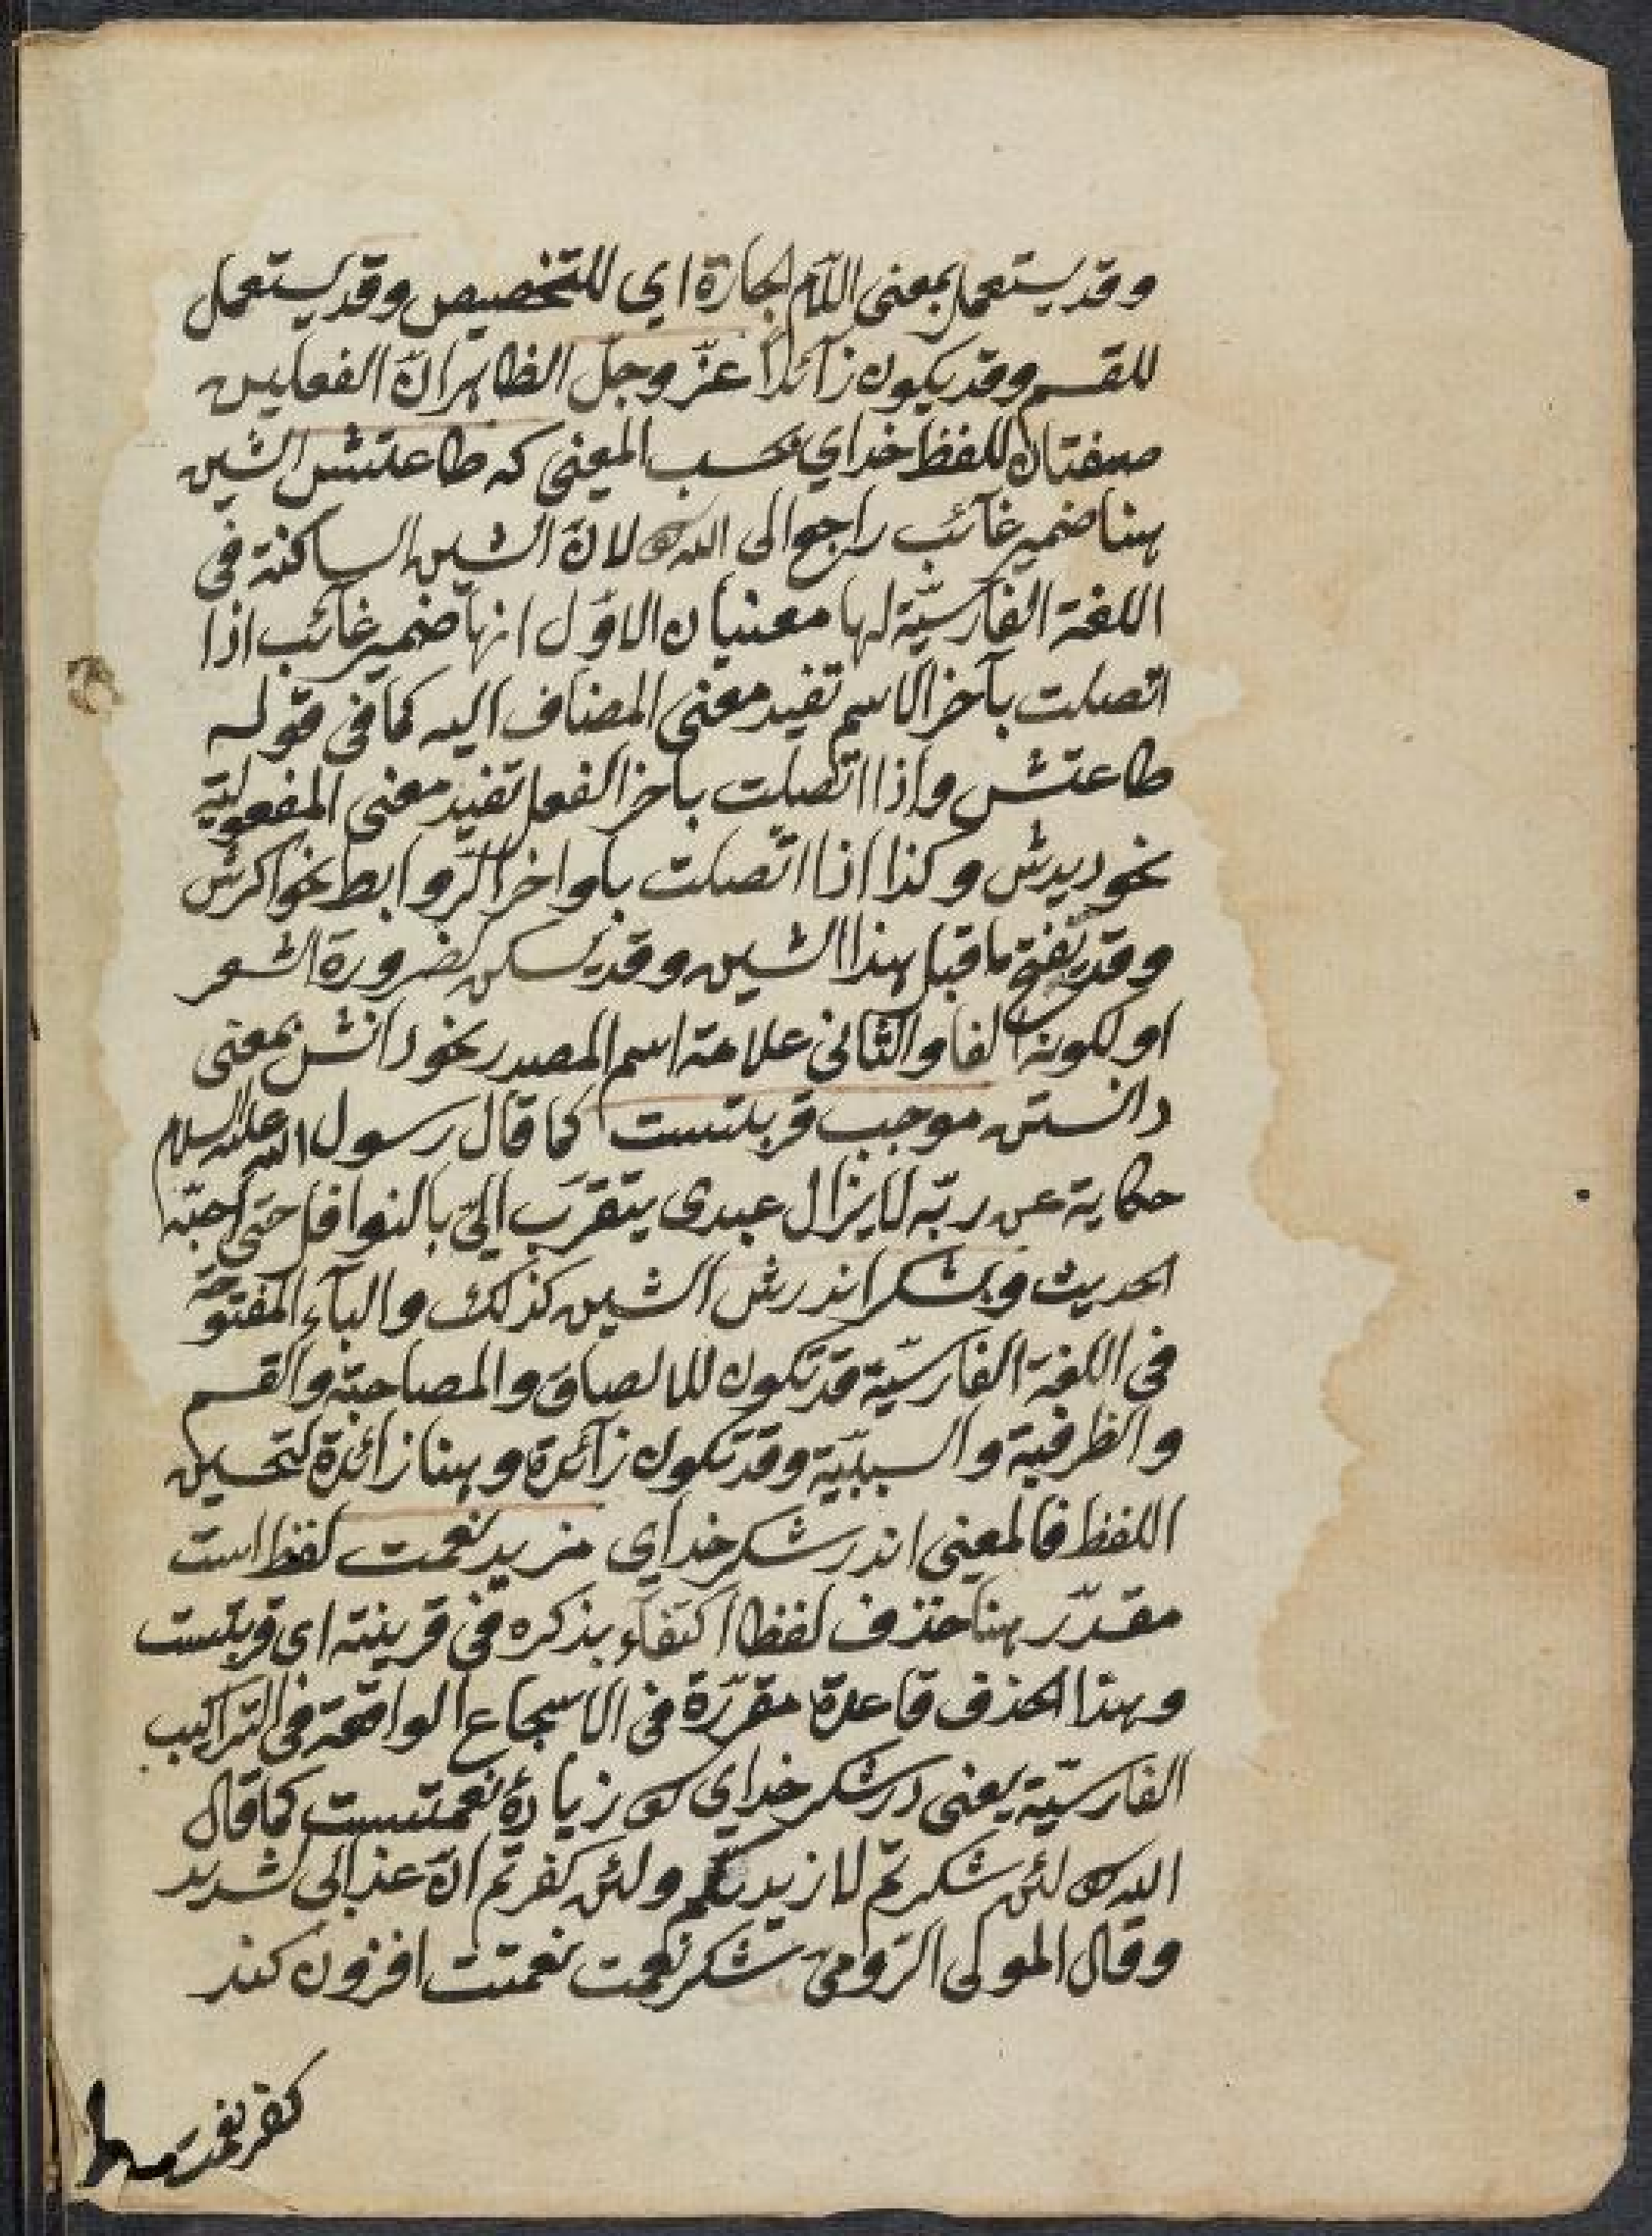 وقد يستعمل بمعنى اللام الجارة اى للتخصيص وقد يستعمل
للقسم وقد يكون زآئداً عزّ وجلّ الظاهر انّ الفعلين
صفتان للفظ خداي بحسب المعنى كه طاعتش الشين
هنا ضمير غآئب راجع الى الله لانّ الشين الساكنة فى
اللغة الفارسيّة لها معنيان الاوّل انها ضمير غآئب اذا
اتصلت بآخر الاسم تفيد معنى المضاف اليه كما فى قوله
طاعتش واذا اتصلت باخر الفعل تفيد معنى المفعوليّة
نحو ديدش وكذا اذا اتصلت باواخر الرّوابط نحو اكرش
وقد يفتح ما قبل هذا الشين وقد يسكن لضرورة الشعر
او لكونه الفا والثانى علامة اسم المصدر نحو دانش بمعنى
دانستن موجب قربتست كما قال رسول الله عليه السلام
حكاية عن ربّه لا يزال عبدى يتقرّب اليّ بالنوافل حتى احبّه
الحديث وبشكر اندرش الشين كذلك والبآء المفتوحة
فى اللغة الفارسيّة قد تكون للالصاق والمصاحبة والقسم
والظرفية والسببيّة وقد تكون زآئدة وهنا زائدة لتحسين
اللفظ فالمعنى اندر شكر خداي مزيد نعمت لفظ است
مقدّر هنا حذف لفظا اكتفآء بذكره فى قرينته اى قربتست
وهذا الحذف قاعدة مقرّرة فى الاسجاع الواقعة فى التراكيب
الفارسيّة يعنى در شكر خداي زيادۀ نعمتست كما قال
الله لئن شكرتم لازيدنّكم ولئن كفرتم انّ عذابى لشديد
وقال المولى الرّومى شكر نعمت نعمتت افزون كند
كفر نعمت